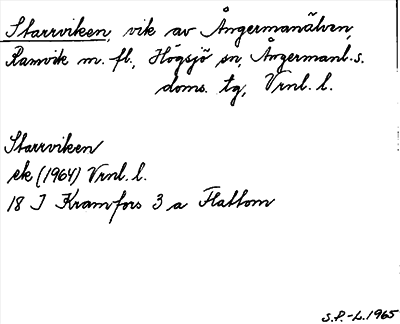 Starrviken, vik av Ångermanälven,
Ramvik m. fl., Högsjö sn, Ångermanl. s.
doms. tg, Vrnl. l.
Starrviken
ek (1964) Vrnl. l.
18 J Kramfors 3 a Flattom
S.P.-L. 1965